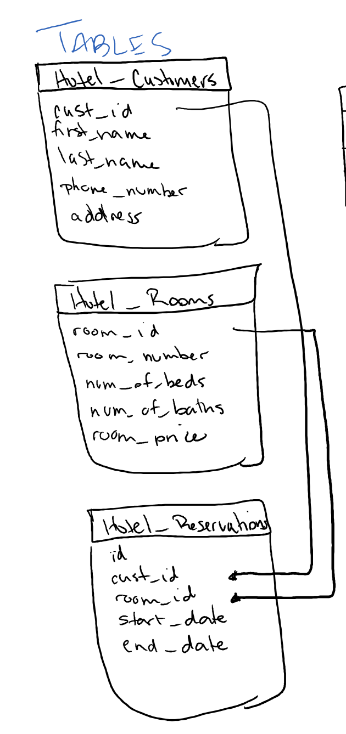 TABLES
Hotel_Customers
cust_id
first_name
last_name
phone_number
address
Hotel_Rooms
room_id
room_number
num_of_beds
num_of_baths
room_price
Hotel_Reservations
id
cust_id
room_id
start_date
end_date